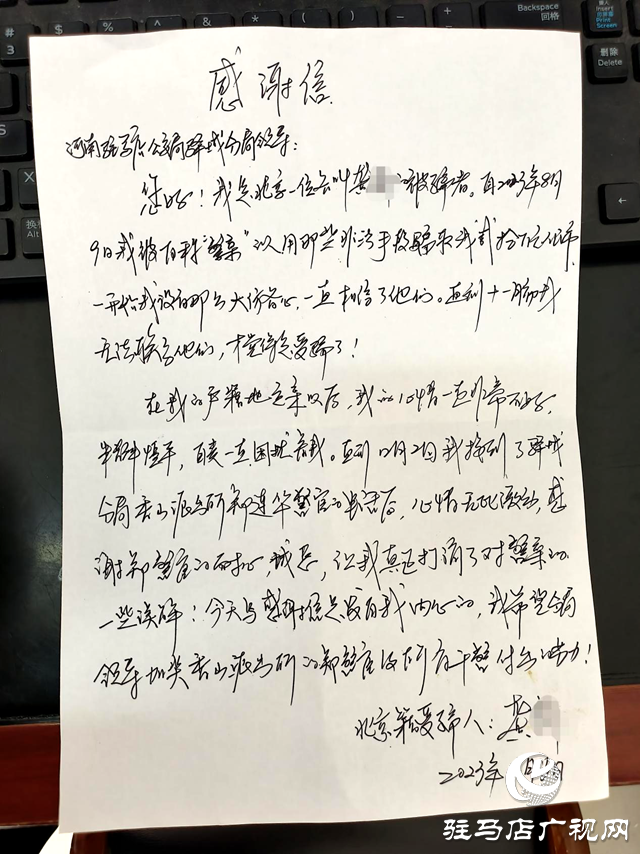 感谢信
河南驻马店公安局驿城分局领导：
您好！我是北京一位名叫龚 的被骗者。自2023年8月
9日我被自称"警察"以用那些非法手段骗取我贰拾万元人民币
一开始我没有那么大防备心，一直相信了他们。直到十一月初我
无法联系他们，才觉得是受骗了！
在我的户籍地立案以后，我的心情一直非常不好，
一直困扰着我。直到12月2日我接到了驿城
分局香山派出所郑连华警官的电话后，心情无比激动，感
谢郑警官的耐心，诚恳，让我真正打消了对警察的
一些误解！今天写感谢信是发自我内心的，我希望分局
领导加奖香山派出所的郑警官及所有干警付出的努力！
北京籍受骗人：龚
2023年
驻马店广视网
Backspace
回格
Insert
Print
Screen
Delete
Alt
#
3
$
4